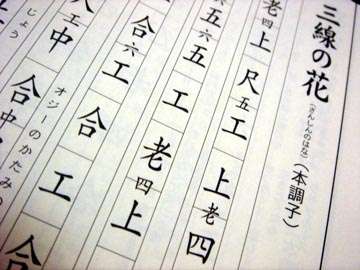 三線の花 (さんしんのはな) (本調子)
老四上尺五工上老四
五六五工老四上
合六工合工合
工中合中
じょう
オジーのかたみの